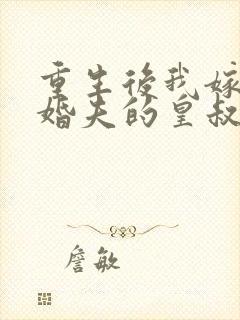 重生後我嫁
婚夫的皇叔
詹敏